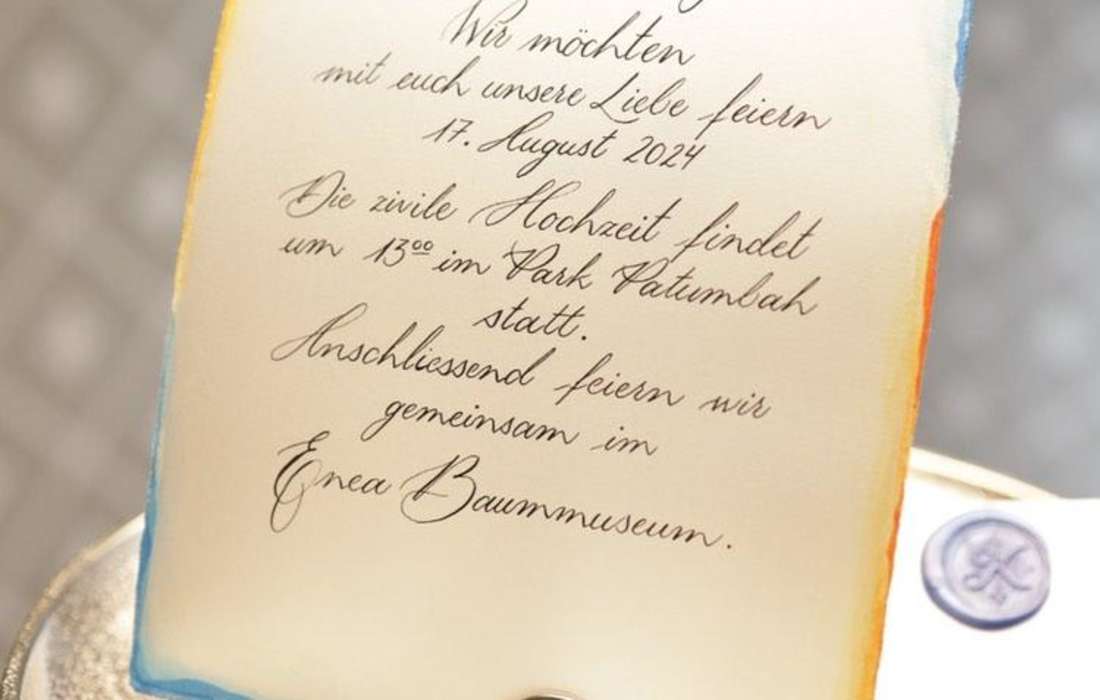 Wir möchten
mit euch unsere Liebe feiern
17. August 2024
Die zivile Hochzeit findet
um 13⁰⁰ im Park Patumbah
statt.
Anschliessend feiern wir
gemeinsam im
Enea Baummuseum.